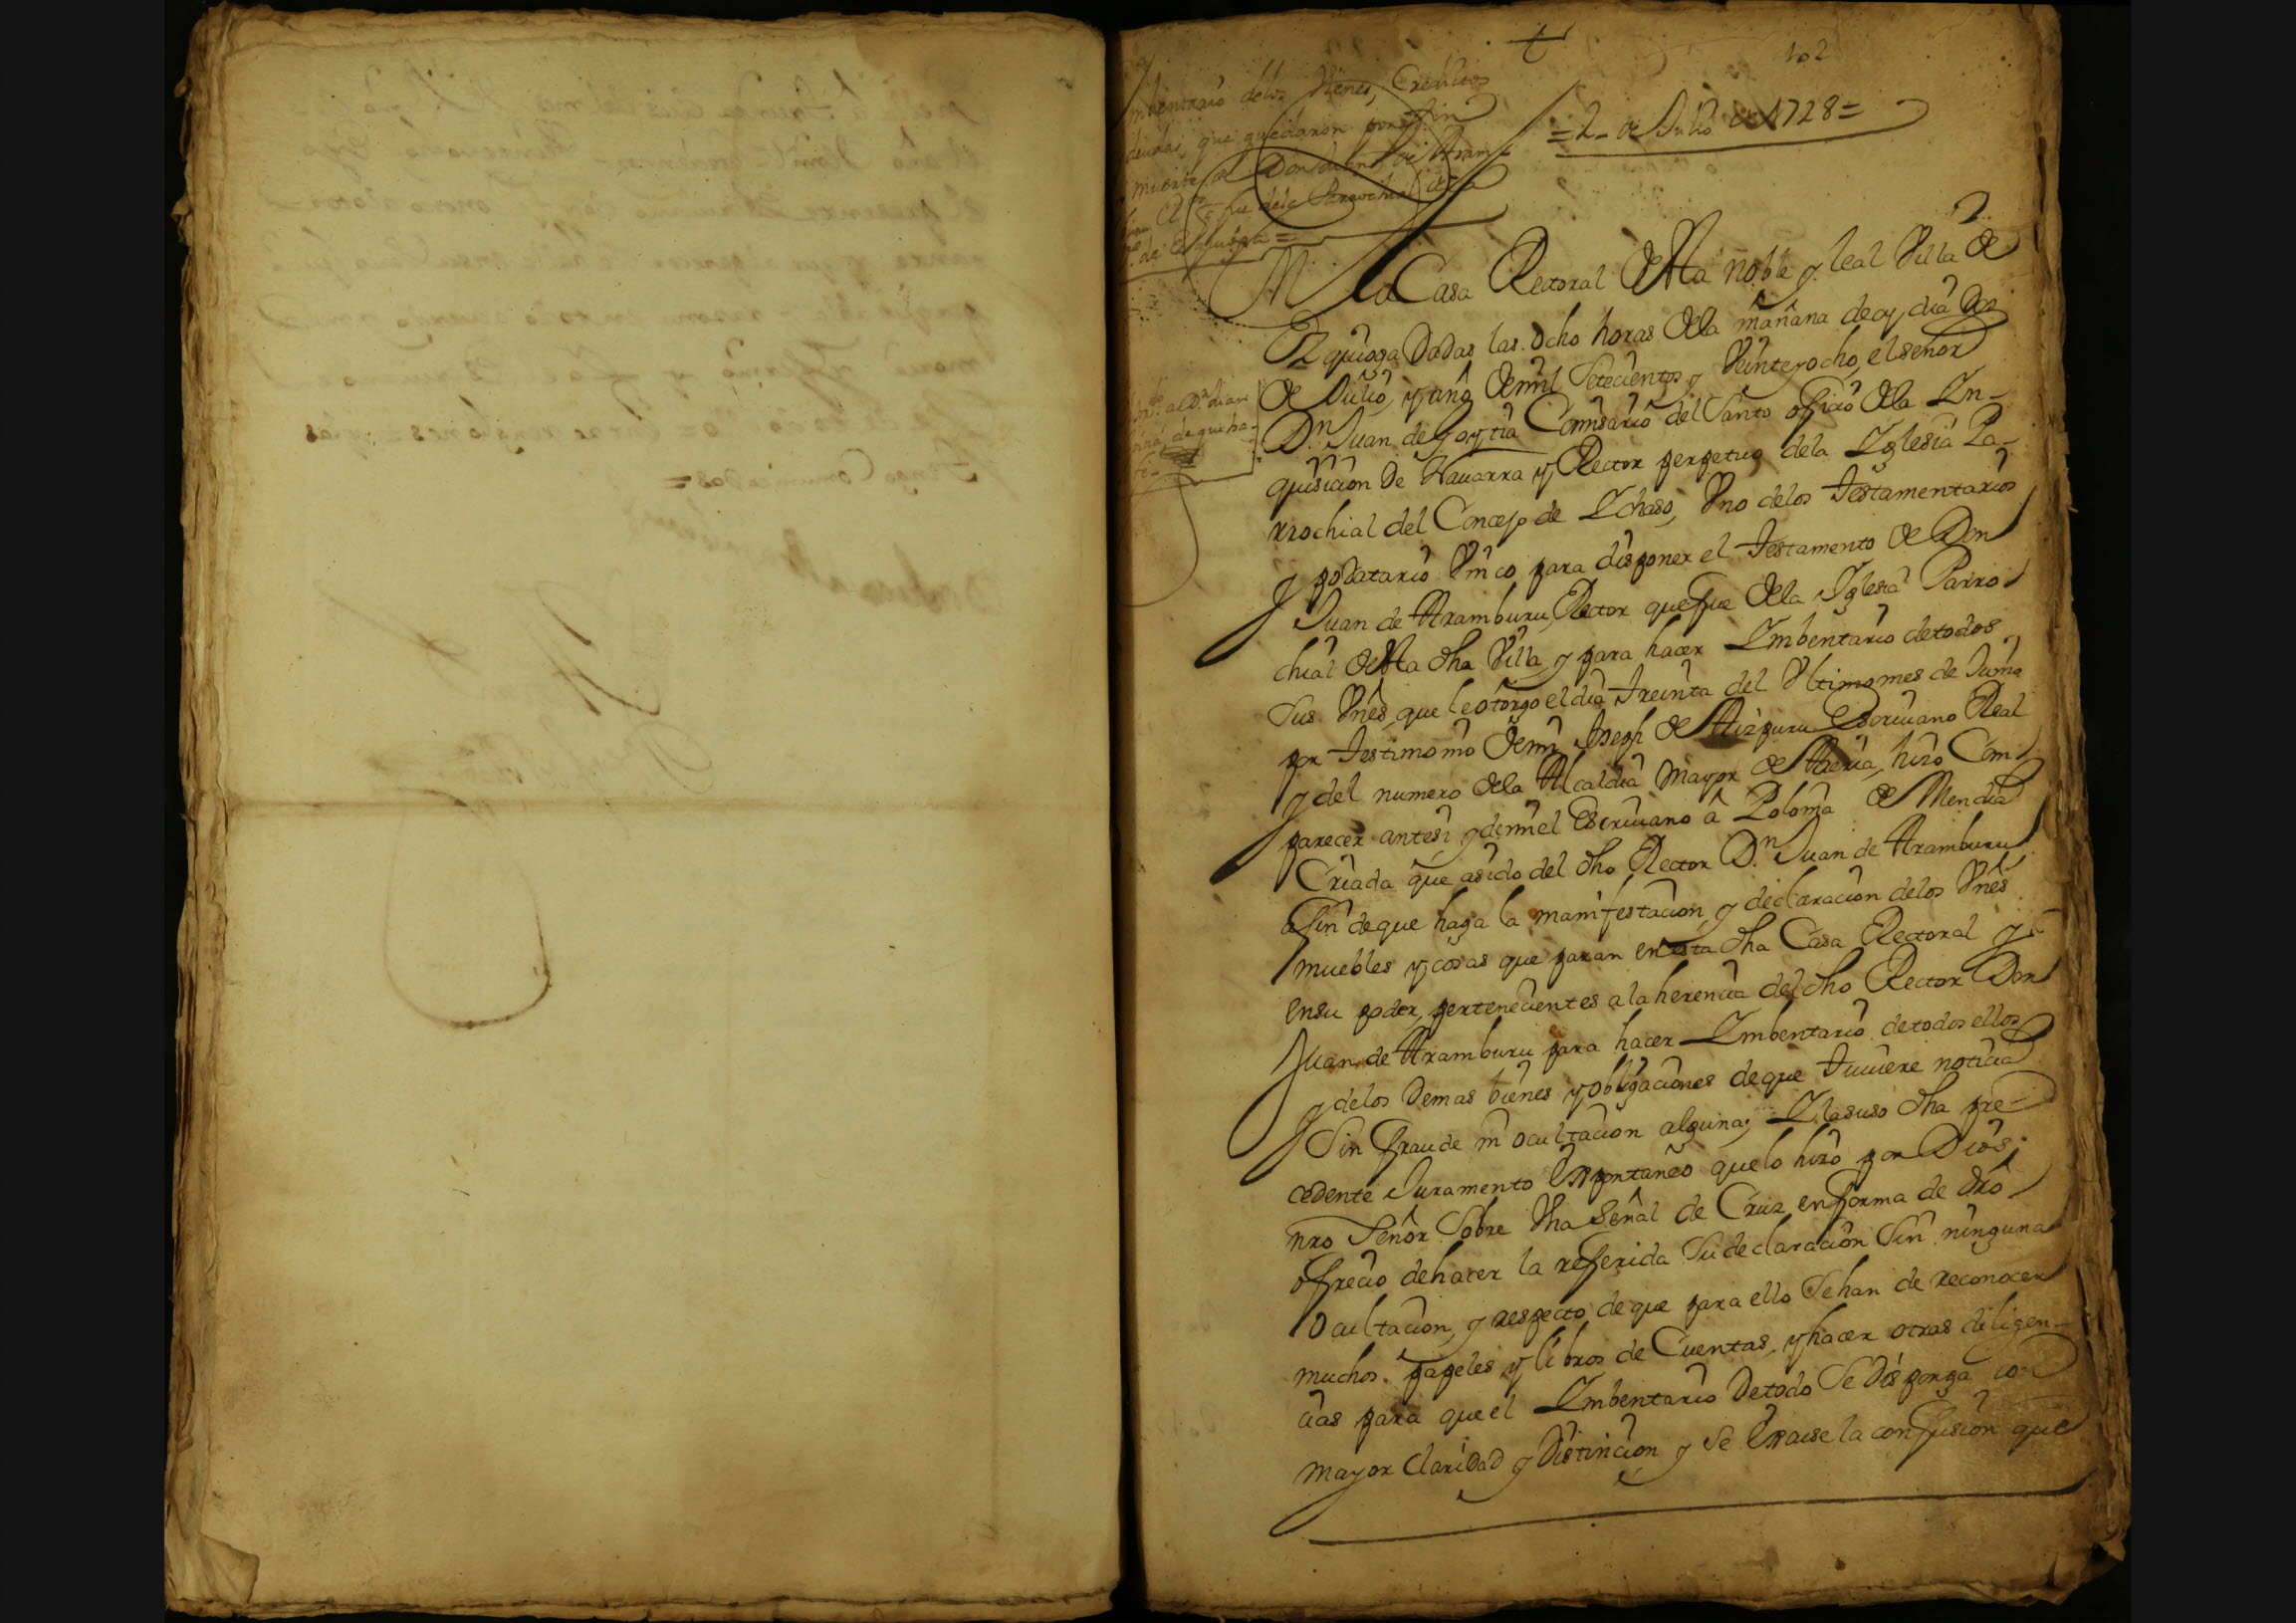 102
=2_ de Julio de 1728=
Imbentario delos Vienes, Creditos
deudas, que quedaron por fin
muerte de Don Juan de Aram-
Rr. que fue dela Parrochial de la
de Ezquioga=
En la Casa Rectoral de esta noble y leal Villa de
Ezquioga Dadas las ocho horas dela mañana de oy dia Dos
de Julio, y año de mil Setecientos y Veinte y ocho, el señor
Dn. Juan de Goytia Comisario del Santo oficio dela In-
quisicion De Nauarra y Rector perpetuo dela Iglesia Pa-
rrochial del Concejo de Ichaso, Vno delos Testamentarios
y podatario Vnico para disponer el testamento de Don
Juan de Aramburu, Rector que fue dela Iglesia Parro
chial de esta dha Villa, y para hacer Imbentario de todos
Sus Vnes, que le otorgo el dia treinta del Vltimo mes de Junio
por testimonio de mi Joseph de Aizpuru Escriuano Real
y del numero dela Alcaldia mayor de Areria, hizo Com-
parecer antesi, y de mi el Escriuano â Poloma de Mendia
Criada que asido del dho Rector Dn. Juan de Aramburu
afin de que haga la manifestacion, y declaracion delos Vnes
muebles y cosas que paran en esta dha Casa Rectoral y
en su poder, pertenecientes a la herencia del dho Rector Don
Juan de Aramburu para hacer Imbentario de todos ellos
y delos Demas bienes y obligaciones de que tuuiere noticia
Sin fraude ni ocultacion alguna; I la suso dha pre-
cedente Juramento Espontaneo que lo hizo por Dios
nro Señor Sobre Vna Señal de Cruz en forma de dro
ofrecio de hacer la referida Su declaracion Sin ninguna
ocultacion, y respecto de que para ello Se han de reconocer
muchos papeles y libros de Cuentas, y hacer otras diligen-
cias para que el Imbentario De todo Se Disponga co-
mayor Claridad y Distincion y se Escuse la confusion que